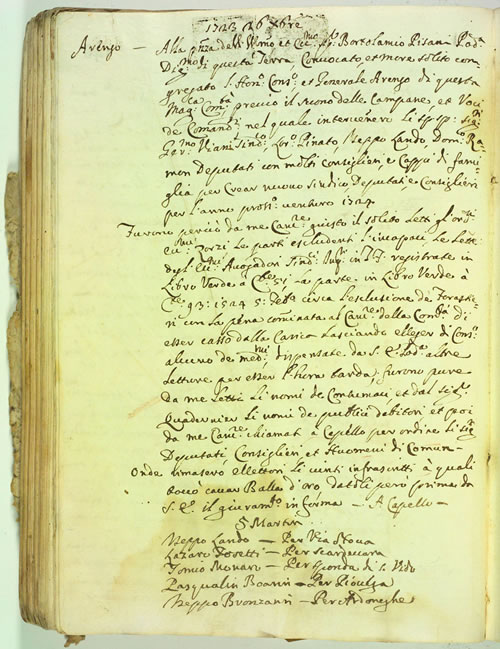 1723 26 Xbre
Arengo — Alla pnza dell Illmo et Ecc.mo Sr Bortolamio Pisani Pod.a
Dig.mo di questa Terra Convocato, et more solito con
gregato l'Hon. Cons.o et Generale Arengo di questa
Mag.ca Com.tà previo il suono delle Campane, et Voci
de Comand.ri nel quale intervenero li sp. sp. Sig.
Viani Sind.co Lor.o Pinato, Neppo Lando, Dom.o Ra
mon Deputati con molti Consiglieri, e Cappi di fami
glia per Crear nuovo Sindico Deputati e Consiglieri
per l'anno pross.o venturo 1724
Furono perciò da me Canc.re giusto il solito Letti gl'or
le parti escludenti l'incapaci, le Lett.e
degl'Ecc.mi Avogadori Sind.ci registrate in
Libro Verde à C.te 51 la parte in Libro Verde à
C.te 93: 1524 5: Feb.o circa l'esclusione de Foraste
ri con la pena cominata al Canc.re della Com.tà di
esser casso dalla Carica lasciando ellegger di Cons.o
alcuno de med.mi dispensate da S. E. Pod.a altre
Letture per esser l'hora tarda, furono pure
da me Letti li nomi de Contumaci et dal Sig.r
Quadernier li nomi de publici debitori et poi
da me Canc.re chiamati à Capello per ordine li Sig.ri
Deputati Consiglieri et Huomeni di Comun —
Onde rimasero ellettori li cinti infrascritti à quali
toccò cavar Balla d'oro datoli però prima da
S. E. il giuram.to in forma — A Capello —
S Martin
Neppo Lando — Per Via Nova
Lazaro Rosetti — Per Scardevara
Tonio Monaro — Per Gionda di S.
Pasqualin Boarin — Per Piovega
Neppo Bronzann — Per Ardoneghe